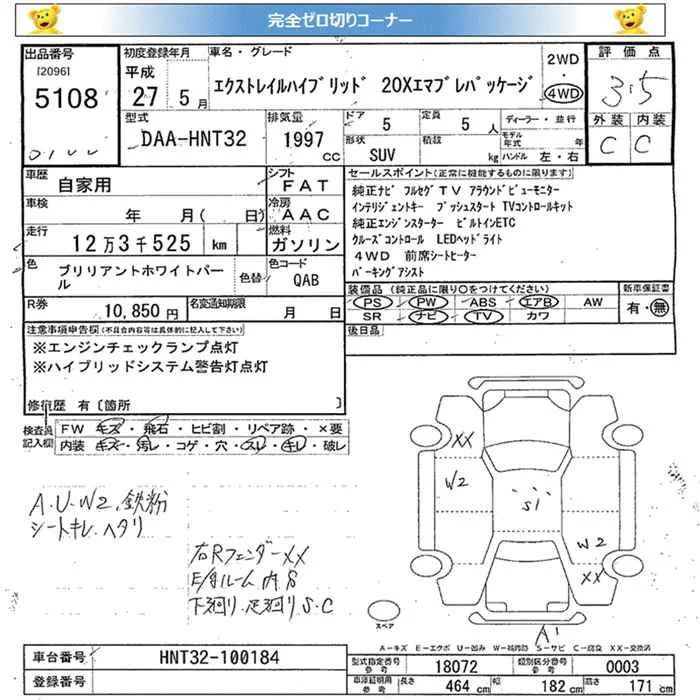 完全ゼロ切りコーナー
出品番号
[2096]
5108
初度登録年月
平成
27 5月
車名・グレード
エクストレイルハイブリッド 20Xエマブレパッケージ
2WD
・
4WD
評価点
3.5
外装 内装
C C
型式
DAA-HNT32
排気量
1997
CC
ドア
5
定員
5 人
ディーラー・並行
形状
SUV
積載
kg
モデル年式 年
ハンドル 左・右
車歴
自家用
シフト
FAT
車検
年 月( 日)
冷房
AAC
走行
12万3千525 km
燃料
ガソリン
色
ブリリアントホワイトパール
色替
色コード
QAB
R券
10,850円
名変通知期限
月 日
セールスポイント(正常に機能するものに限ります)
純正ナビ フルセグTV アラウンドビューモニター
インテリジェントキー プッシュスタート TVコントロールキット
純正エンジンスターター ビルトインETC
クルーズコントロール LEDヘッドライト
4WD 前席シートヒーター
パーキングアシスト
装備品 (純正品に限り○をつけてください)
PS PW ABS エアB AW
SR ナビ TV カワ
新車保証書
有・無
後日品
注意事項申告欄(不具合内容等は具体的に記入して下さい)
※エンジンチェックランプ点灯
※ハイブリッドシステム警告灯点灯
修復歴 有〔箇所 〕
検査員記入欄
FW キズ・飛石・ヒビ割・リペア跡・×要
内装 キズ・汚レ・コゲ・穴・スレ・キレ・破レ
A.U.W2.鉄粉
シートキレ.ヘタリ
右Rフェンダー XX
下廻り.足廻り.S.C
XX
W2
S1
W2
XX
A1
スペア
A-キズ E-エクボ U-凹み W-補修跡 S-サビ C-腐食 XX-交換済
車台番号
HNT32-100184
登録番号
型式指定番号
参考
18072
類別区分番号
参考
0003
車庫証明用
参考
長さ
464 cm
幅
182 cm
高さ
171 cm